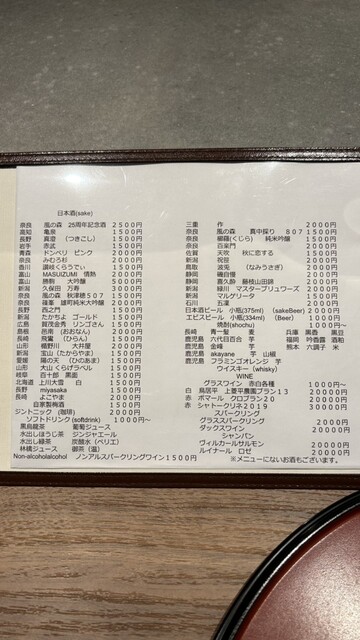 日本酒(sake)
奈良 風の森 25周年記念酒 2500円
高知 亀泉 1500円
長野 真澄 (つきこし) 1500円
岩手 赤武 1500円
青森 ドンペリ ピンク 2000円
奈良 みむろ杉 2000円
香川 讃岐くらうでぃ 1500円
富山 MASUIZUMI 情熱 2000円
富山 勝駒 大吟醸 5000円
新潟 久保田 万寿 3000円
奈良 風の森 秋津穂507 1500円
奈良 篠峯 雄町純米大吟醸 2000円
長野 西之門 1500円
新潟 たかちよ ゴールド 1500円
広島 賀茂金秀 リンゴさん 1500円
島根 邑南 (おおなん) 2000円
長崎 飛鸞 (ひらん) 1500円
山形 楯野川 大井屋 2000円
新潟 宝山(たからやま) 1500円
愛媛 陽の天 (ひのあま) 1500円
山形 大山 くらげラベル 1500円
岐阜 百十郎 黒面 1500円
北海道 上川大雪 白 1500円
長野 miyasaka 1500円
長崎 よこやま 2000円
自家製梅酒 1500円
ジントニック (珈琲) 2000円
ソフトドリンク(softdrink) 1000円~
黒烏龍茶 葡萄ジュース
水出しほうじ茶 ジンジャエール
水出し緑茶 炭酸水(ペリエ)
林檎ジュース 御茶(温)
Non-alcoholalcohol ノンアルスパークリングワイン1500円
三重 作 2000円
奈良 風の森 真中採り 807 1500円
奈良 櫛羅(くじら) 純米吟醸 1500円
奈良 百楽門 2000円
佐賀 天吹 秋に恋する 1500円
新潟 祝蓉 2000円
鳥取 (なみうさぎ) 2000円
静岡 磯自慢 2000円
静岡 喜久酔 藤枝山田錦 2000円
新潟 緑川 マスターブリュワーズ 2000円
新潟 マルゲリータ 1500円
石川 五凜 2000円
日本酒ビール 小瓶(375ml) (sakeBeer) 2000円
エビスビール 小瓶(334ml) (Beer) 1000円
焼酎(shochu) 1000円~
長崎 青一髪 麦 兵庫 黒壺 黒豆
鹿児島 六代目百合 芋 福岡 吟香露 酒粕
鹿児島 金峰 芋 熊本 六調子 米
鹿児島 akayane 芋 山椒
鹿児島 フラミンゴオレンジ 芋
ウイスキー (whisky)
WINE
グラスワイン 赤白各種 1000円~
白 鳥居平 上菱平農園ブラン13 20000円
赤 ポマール クロブラン20 20000円
赤 シャトークリネ2019 30000円
スパークリング
グラススパークリング 2000円
ダックスワイン 20000円
シャンパン
ヴィルカールサルモン 20000円
ルイナール ロゼ 20000円
※メニューにないお酒もございます。